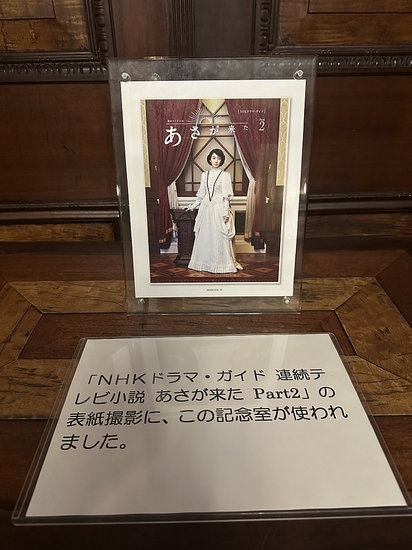 NHKドラマ・ガイド
あさが来た
2
「NHKドラマ・ガイド 連続テ
レビ小説 あさが来た Part2」の
表紙撮影に、この記念室が使われ
ました。